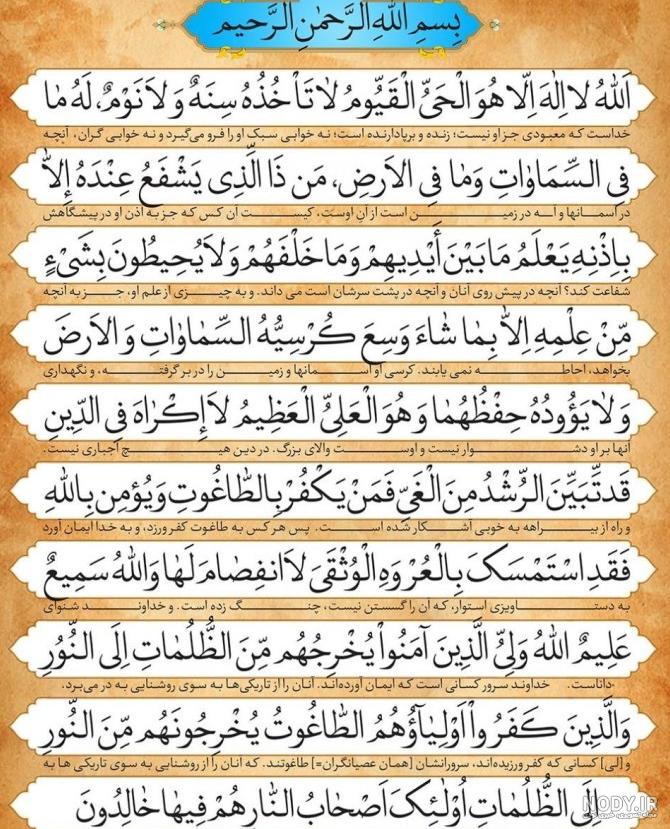 بِسمِ اللهِ الرَّحمٰنِ الرَّحیمِ
اَللهُ لا اِلٰهَ اِلّا هُوَ الْحَیُّ الْقَیُّومُ لاٰ تَاْخُذُهُ سِنَهٌ وَ لاَ نَوْمٌ، لَهُ مٰا
خداست که معبودی جز او نیست؛ زنده و برپادارنده است؛ نه خوابی سبک او را فرو می‌گیرد و نه خوابی گران، آنچه
فِی السِّمَاوَاتِ وَمٰا فِی الاَرضِ، مَن ذَا الَّذِی یَشْفَعُ عِنْدَهُ اِلاّٰ
در آسمانها و آنچه در زمین است از آن اوست، کیست آن کس که جز به اذن او در پیشگاهش
بِاِذْنِهِ یَعْلَمُ مٰا بَیْنَ أَیْدِیهِمْ وَ مٰا خَلْفَهُمْ وَلاَ یُحِیطُونَ بِشَیْءٍ
شفاعت کند؟ آنچه در پیش روی آنان و آنچه در پشت سرشان است می داند. و به چیزی از علم او، جز به آنچه
مِّنْ عِلْمِهِ اِلاّٰ بِمٰا شٰاءَ وَسِعَ کُرْسِیُّهُ السِّمٰاوٰاتِ وَ الاَرضَ
بخواهد، احاطه نمی یابند. کرسی او آسمانها و زمین را در بر گرفته، و نگهداری
وَ لاٰ یَؤُودُهُ حِفْظُهُمٰا وَ هُوَ الْعَلِیُّ الْعَظِیمُ لاَ اِکْرٰاهَ فِی الدِّینِ
آنها بر او دشوار نیست و اوست والای بزرگ. در دین هیچ اجباری نیست.
قَد تَّبَیَّنَ الرُّشْدُ مِنَ الْغَیِّ فَمَنْ یَکْفُرْ بِالطّٰاغُوتِ وَ یُؤْمِن بِاللهِ
و راه از بیراهه به خوبی آشکار شده است. پس هر کس به طاغوت کفر ورزد، و به خدا ایمان آورد
فَقَدِ اسْتَمْسَکَ بِالْعُرْوَهِ الْوُثْقَیٰ لاَ انفِصٰامَ لَهٰا وَ اللهُ سَمِیعٌ
به دستاویزی استوار، که آن را گسستن نیست، چنگ زده است. و خداوند شنوای
عَلِیمٌ اللهُ وَلِیُّ الَّذِینَ آمَنُواْ یُخْرِجُهُم مِّنَ الظُّلُمٰاتِ اِلَی النُّوُرِ
داناست. خداوند سرور کسانی است که ایمان آورده‌اند. آنان را از تاریکی‌ها به سوی روشنایی به در می‌برد.
وَالَّذِینَ کَفَرُواْ اَوْلِیٰآؤُهُمُ الطّٰاغُوتُ یُخْرِجُونَهُم مِّنَ النُّورِ
و [لی] کسانی که کفر ورزیده‌اند، سرورانشان [همان عصیانگران=] طاغوتند. که آنان را از روشنایی به سوی تاریکی ها به
اِلَی الظُّلُمٰاتِ اُوْلٰئِکَ اَصْحٰابُ النّٰارِ هُمْ فِیهٰا خٰالِدُونَ
NODY.IR